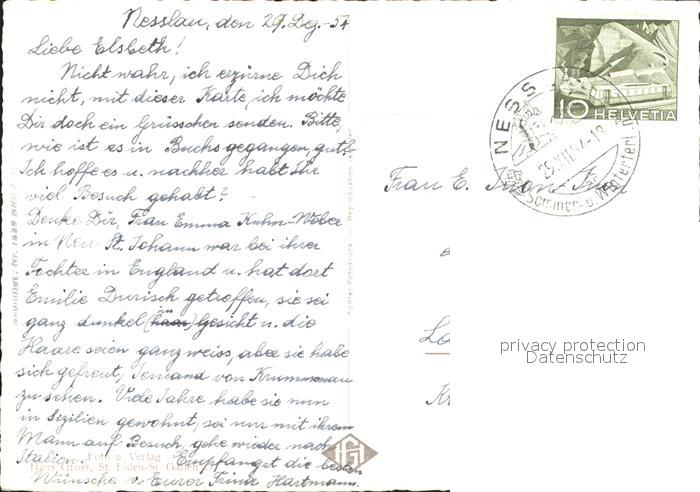 Nesslau, den 29. Dez. - 54
Liebe Elsbeth!
Nicht wahr, ich erzürne Dich
nicht, mit dieser Karte, ich möchte
Dir doch ein Grüsschen senden. Bitte,
wie ist es in Buchs gegangen, gut?
Ich hoffe es u. nachher habt Ihr
viel Besuch gehabt?
Denke Dir, Frau Emma Kuhn-Weber
in Neu St. Johann war bei ihrer
Tochter in England u. hat dort
Emilie Durisch getroffen, sie sei
ganz dunkel (haar) im Gesicht u. die
Haare seien ganz weiss, aber sie habe
sich gefreut, Jemand von Krummenau
zu sehen. Viele Jahre habe sie nun
in Sizilien gewohnt, sei nur mit ihrem
Mann auf Besuch, gehe wieder nach
Italien. Empfanget die besten
Wünsche v. Eurer Trina Hartmann.
Foto u. Verlag
Hans Gross, St. Fiden-St. Gallen
HG
10 HELVETIA
NESS
29.XII.54-18
Sommer- u. Winterferien
Frau E.
privacy protection
Datenschutz